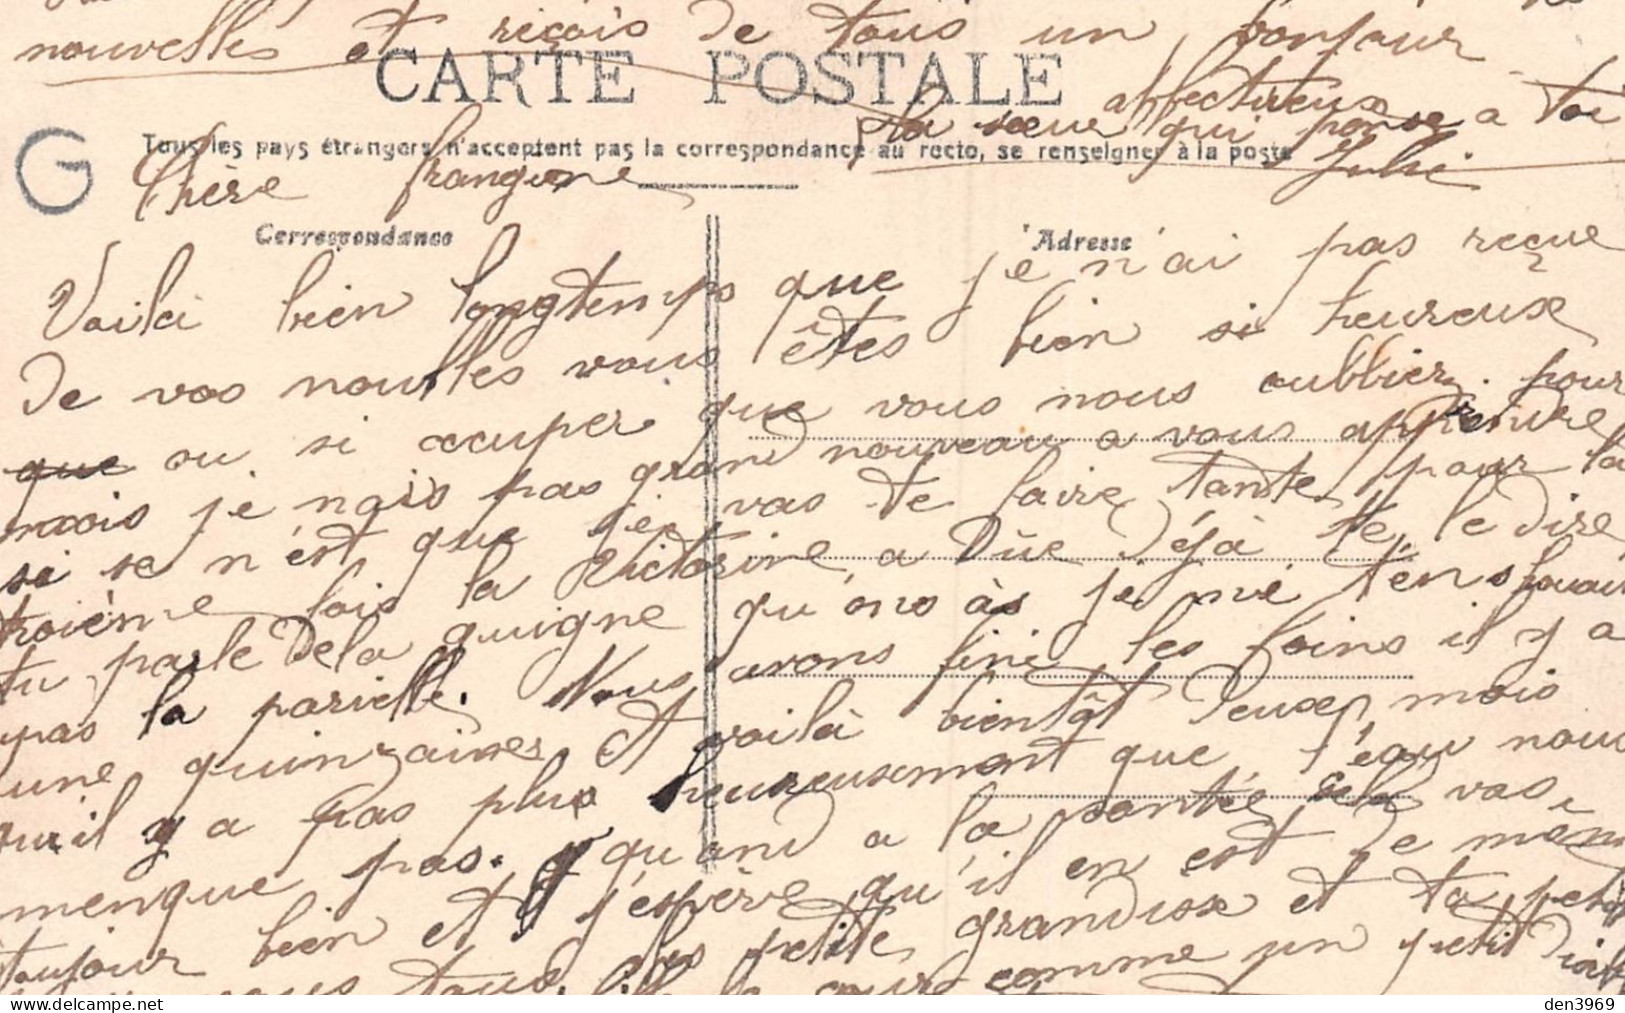 nouvelles et reçois de tous un bonjour
affectueux
CARTE POSTALE
Ta sœur qui pense a toi
Julie
Tous les pays étrangers n'acceptent pas la correspondance au recto, se renseigner à la poste
G
Chère frangine
Correspondance
Adresse
Voilci bien longtemps que je n'ai pas reçue
de vos nouvlles vous êtes bien si heureux
que ou si occuper que vous nous oubblier pour
mois je nais pas grand nouveau a vous apprendre
si se n'est que je vas te faire tante pour la
troième fois la Victorine a dûe déjà te le dire
tu parle de la guigne qu'ons às je me t'en
pas la parielle. Nous avons fini les foins il y a
une quinzaines et voilà bientôt deux mois
qu'il y a pas plus heureusement que l'eau nous
menque pas. quand a la santée sela vas
toujour bien et j'espère qu'il en est de même
vous tous. les petite grandisse et ta petite
comme un petit